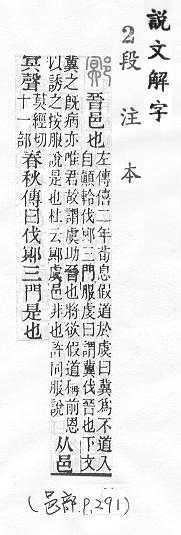 說文解字
2段注本
鄍 晉邑也 左傳僖二年荀息假道於虞曰冀爲不道入
自顚軨伐鄍三門服虔曰謂冀伐晉也下文
冀之旣病亦唯君故謂虞助晉也將欲假道稱前恩
以誘之按服說是也杜云鄍虞邑非也許同服說 从邑
冥聲 莫經切
十一部 春秋傳曰伐鄍三門是也
(邑部.P.291)